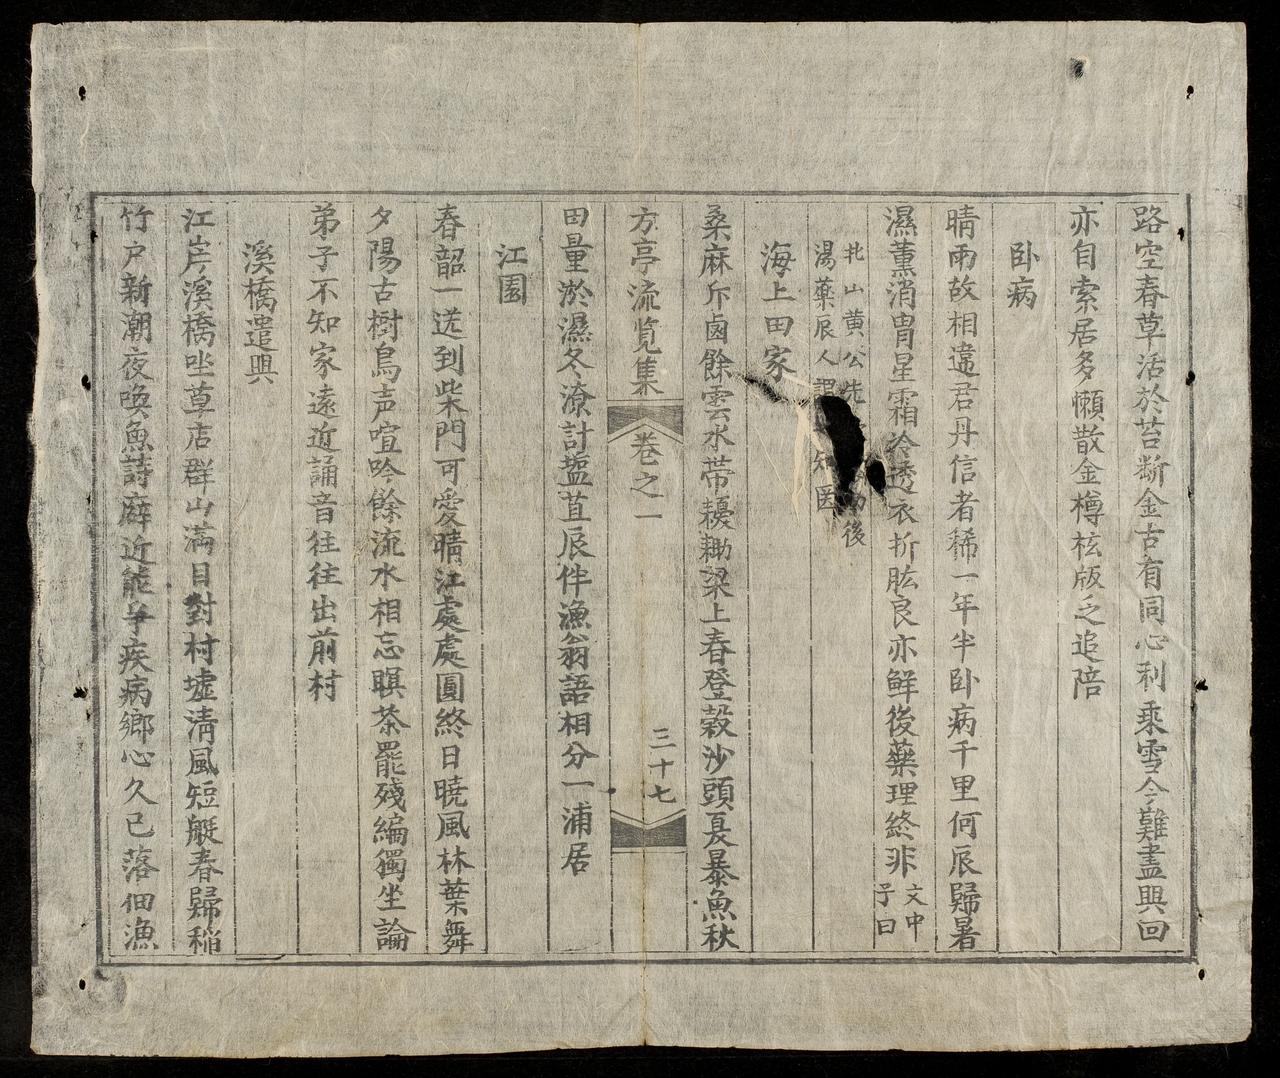 路空春草活於苔斷金古有同心利乘雪今難盡興回
亦自索居多懶散金樽校版乏追陪
卧病
晴雨故相違君丹信者稀一年半卧病千里何辰歸暑
濕薰消胃星霜冷透衣折肱良亦鮮後藥理終非文中
子曰
北山黄公先後
湯藥辰人謂知医
海上田家
桑麻斥鹵餘雲水帶耰耡梁上春登榖沙頭夏暴魚秋
方亭流览集 卷之一 三十七
田量淤濕冬潦計塩苴辰伴漁翁語相分一浦居
江園
春韶一送到柴門可愛晴江處處圓終日曉風林葉舞
夕陽古樹鳥声喧吟餘流水相忘暝茶罷殘編獨坐論
弟子不知家遠近誦音往往出前村
溪橋遣興
江岸溪橋唑草店群山滿目對村墟清風短艇春歸稲
竹户新潮夜喚魚詩癖近能爭疾病鄉心久已落佃漁